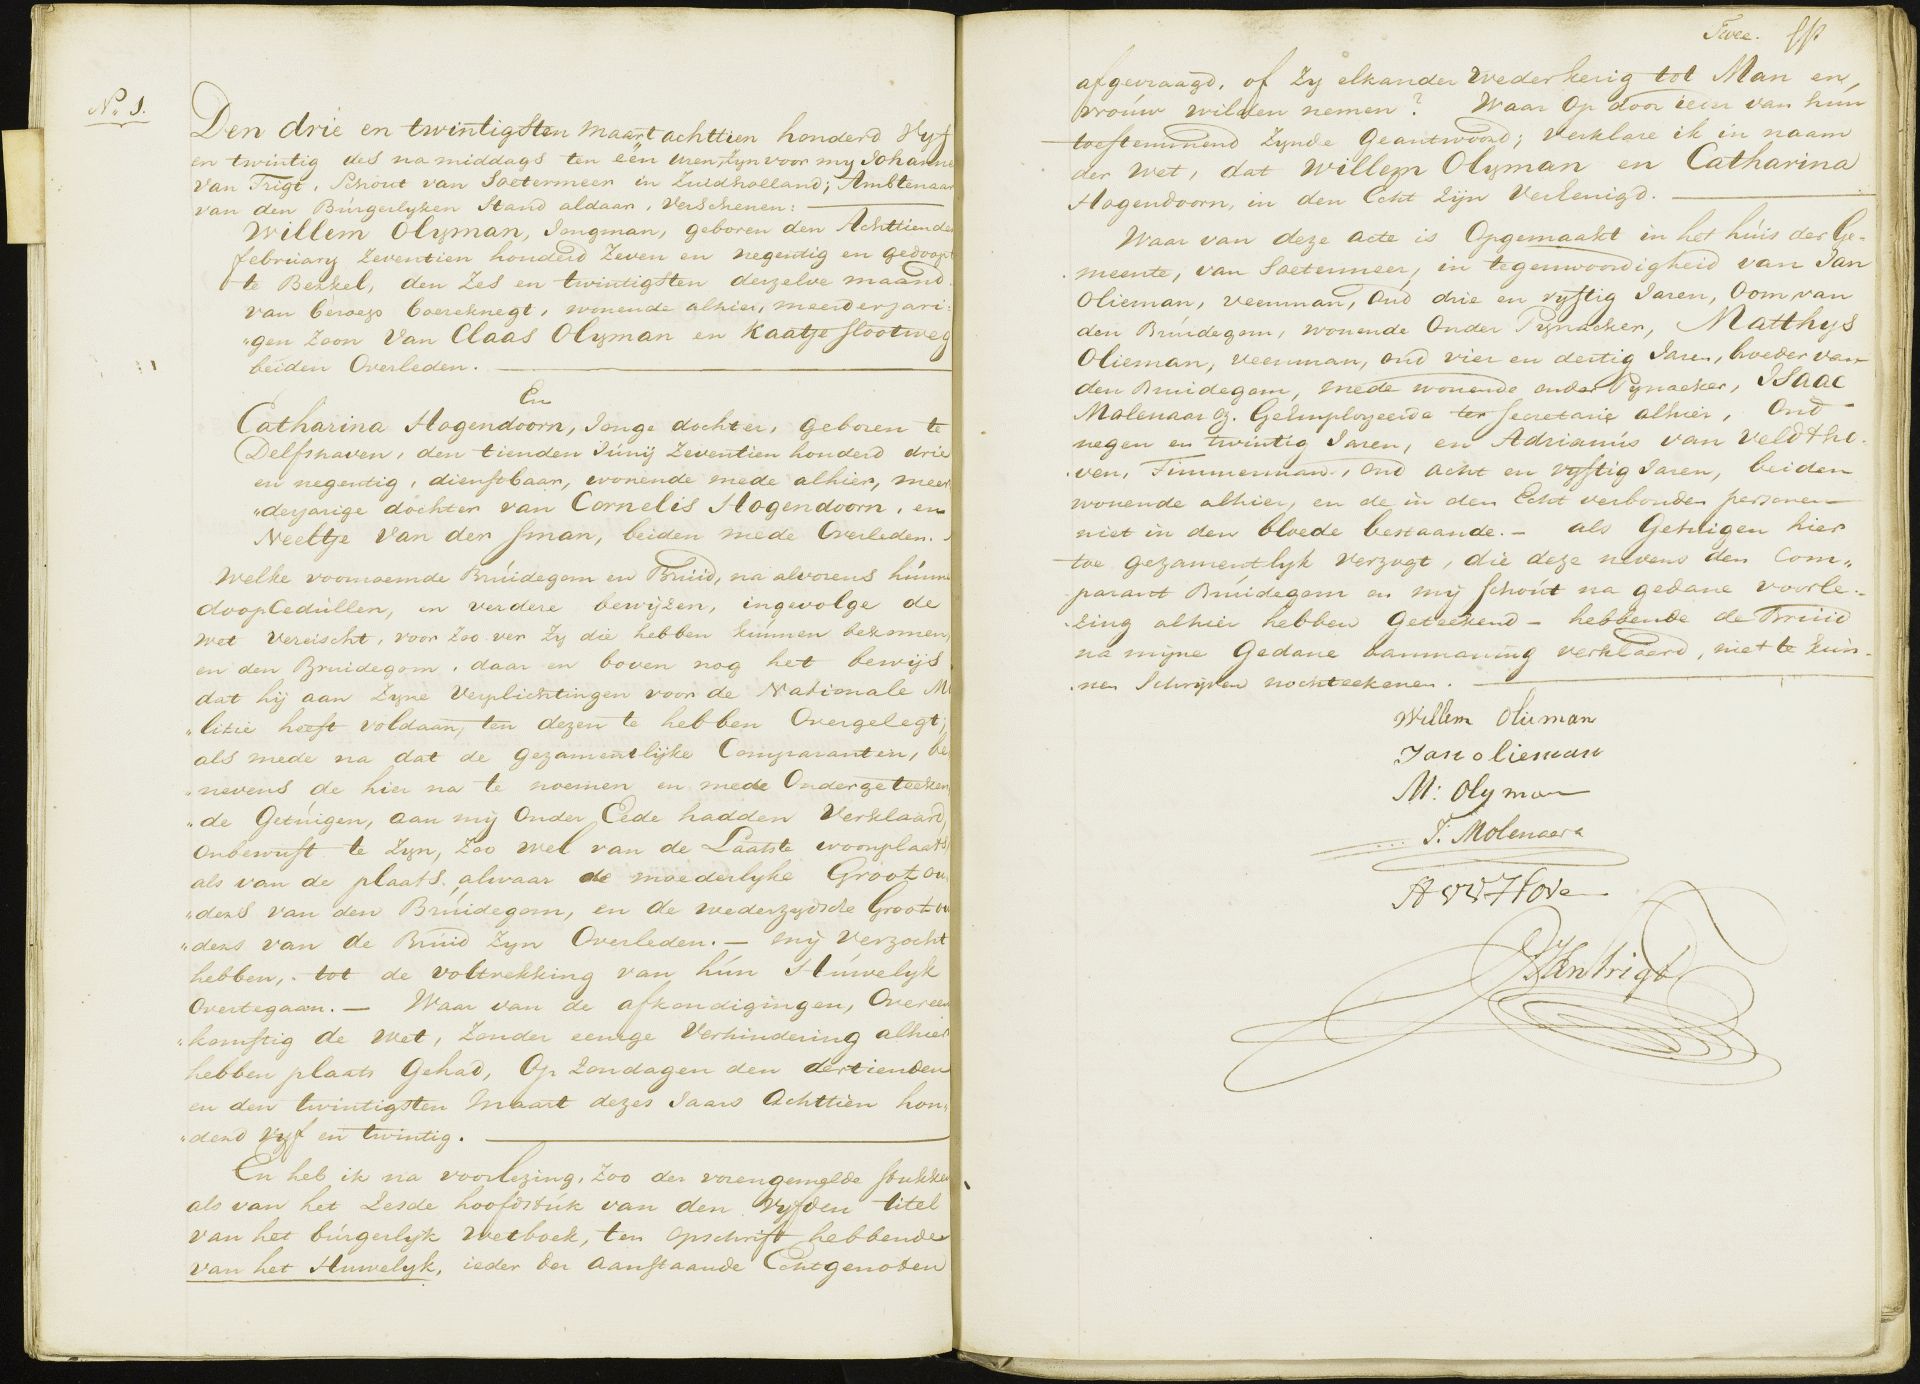 No. 1.
Den drie en twintigsten maart achttien honderd vyf
en twintig des namiddags ten een uren, zyn voor my Johanne
van Trigt, Schout van Soetermeer in Zuidholland; Ambtenaar
van den Burgerlyken Stand aldaar, verschenen:
Willem Olyman, Jongman, geboren den Achttiende
february zeventien honderd Zeven en negentig en gedoopt
te Berkel, den zes en twintigsten derzelve maand
van beroep boereknegt, wonende alhier, meerderjari-
"gen zoon van Claas Olyman en Kaatje Slootweg
beiden Overleden.
En
Catharina Hogendoorn, Jonge dochter, geboren te
Delfshaven, den tienden Junij Zeventien honderd drie
en negentig, dienstbaar, wonende mede alhier, meer
"derjarige dochter van Cornelis Hogendoorn, en
Neeltje van der Sman, beiden mede Overleden.
Welke voornoemde Bruidegom en Bruid, na alvorens hunne
doopCedullen, en verdere bewijzen, ingevolge de
wet vereischt, voor zoo ver zy die hebben kunnen bekomen,
en den Bruidegom, daar en boven nog het bewijs
dat hij aan zyne verplichtingen voor de Nationale Mi
"litie heeft voldaan, ten dezen te hebben Overgelegt;
als mede na dat de gezamentlijke Comparanten, be
"nevens de hier na te noemen en mede Ondergeteeken
"de Getuigen, aan mij Onder Eede hadden Verklaard,
Onbewust te zyn, zoo wel van de Laatste woonplaats,
als van de plaats, alwaar de moederlyke Grootou
"ders van den Bruidegom, en de wederzydsche Grootou
"ders van de Bruid zyn Overleden. — mij verzocht
hebben, tot de voltrekking van hun Huwelyk
Overtegaan. — Waar van de afkondigingen, Overeen
"komstig de wet, zonder eenige verhindering alhier
hebben plaats Gehad, Op zondagen den dertienden
en den twintigsten Maart dezes Jaars Achttien hon,
"derd vyf en twintig.
En heb ik na voorlezing, zoo der vorengemelde stukken
als van het zesde hoofdstuk van den vyfden titel
van het burgerlijk wetboek, ten opschrift hebbende
van het Huwelyk, ieder der aanstaande Echtgenoten
Twee.
afgevraagd, of zy elkander wederkerig tot Man en,
vrouw wilden nemen? Waar Op door ieder van hun
toestemmend zynde Geantwoord; verklare ik in naam
der wet, dat Willem Olyman en Catharina
Hogendoorn, in den Echt zijn verlenigd.
Waar van deze acte is Opgemaakt in het huis der Ge-
meente, van Soetermeer, in tegenwoordigheid van Jan
Olieman, veenman, Oud drie en vyftig Jaren, Oom van
den Bruidegom, wonende Onder Pynacker, Matthys
Olieman, veenman, oud vier en dertig Jaren, broeder van
den Bruidegom, mede wonende onder Pynacker, Isaac
Molenaar Geëmployeerde ter secretarie alhier, Oud
negen en twintig Jaren, en Adrianus van Veldtho-
ven, Timmerman, oud acht en vyftig Jaren, beiden
wonende alhier, en de in den Echt verbonden personen
niet in den bloede bestaande. — als Getuigen hier
toe gezamentlyk verzogt, die deze nevens den Com,,
parant Bruidegom en my Schout na gedane voorle-
zing alhier hebben Geteekend — hebbende de Bruid
na mijne Gedane aanmaning verklaard, niet te kun-
nen schrijven noch teekenen.
Willem Olieman
Jan olieman
M: Olyman
I. Molenaar
A v Hove
J Van Trigt